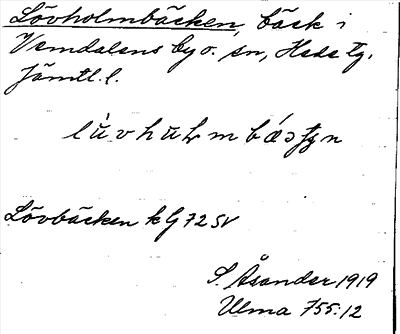 Lövholmbäcken, bäck i
Vemdalens by o. sn, Hede tg.
Jämtl. l.
Lövbäcken k G 72 SV
S. Åsander 1919
Ulma 755:12